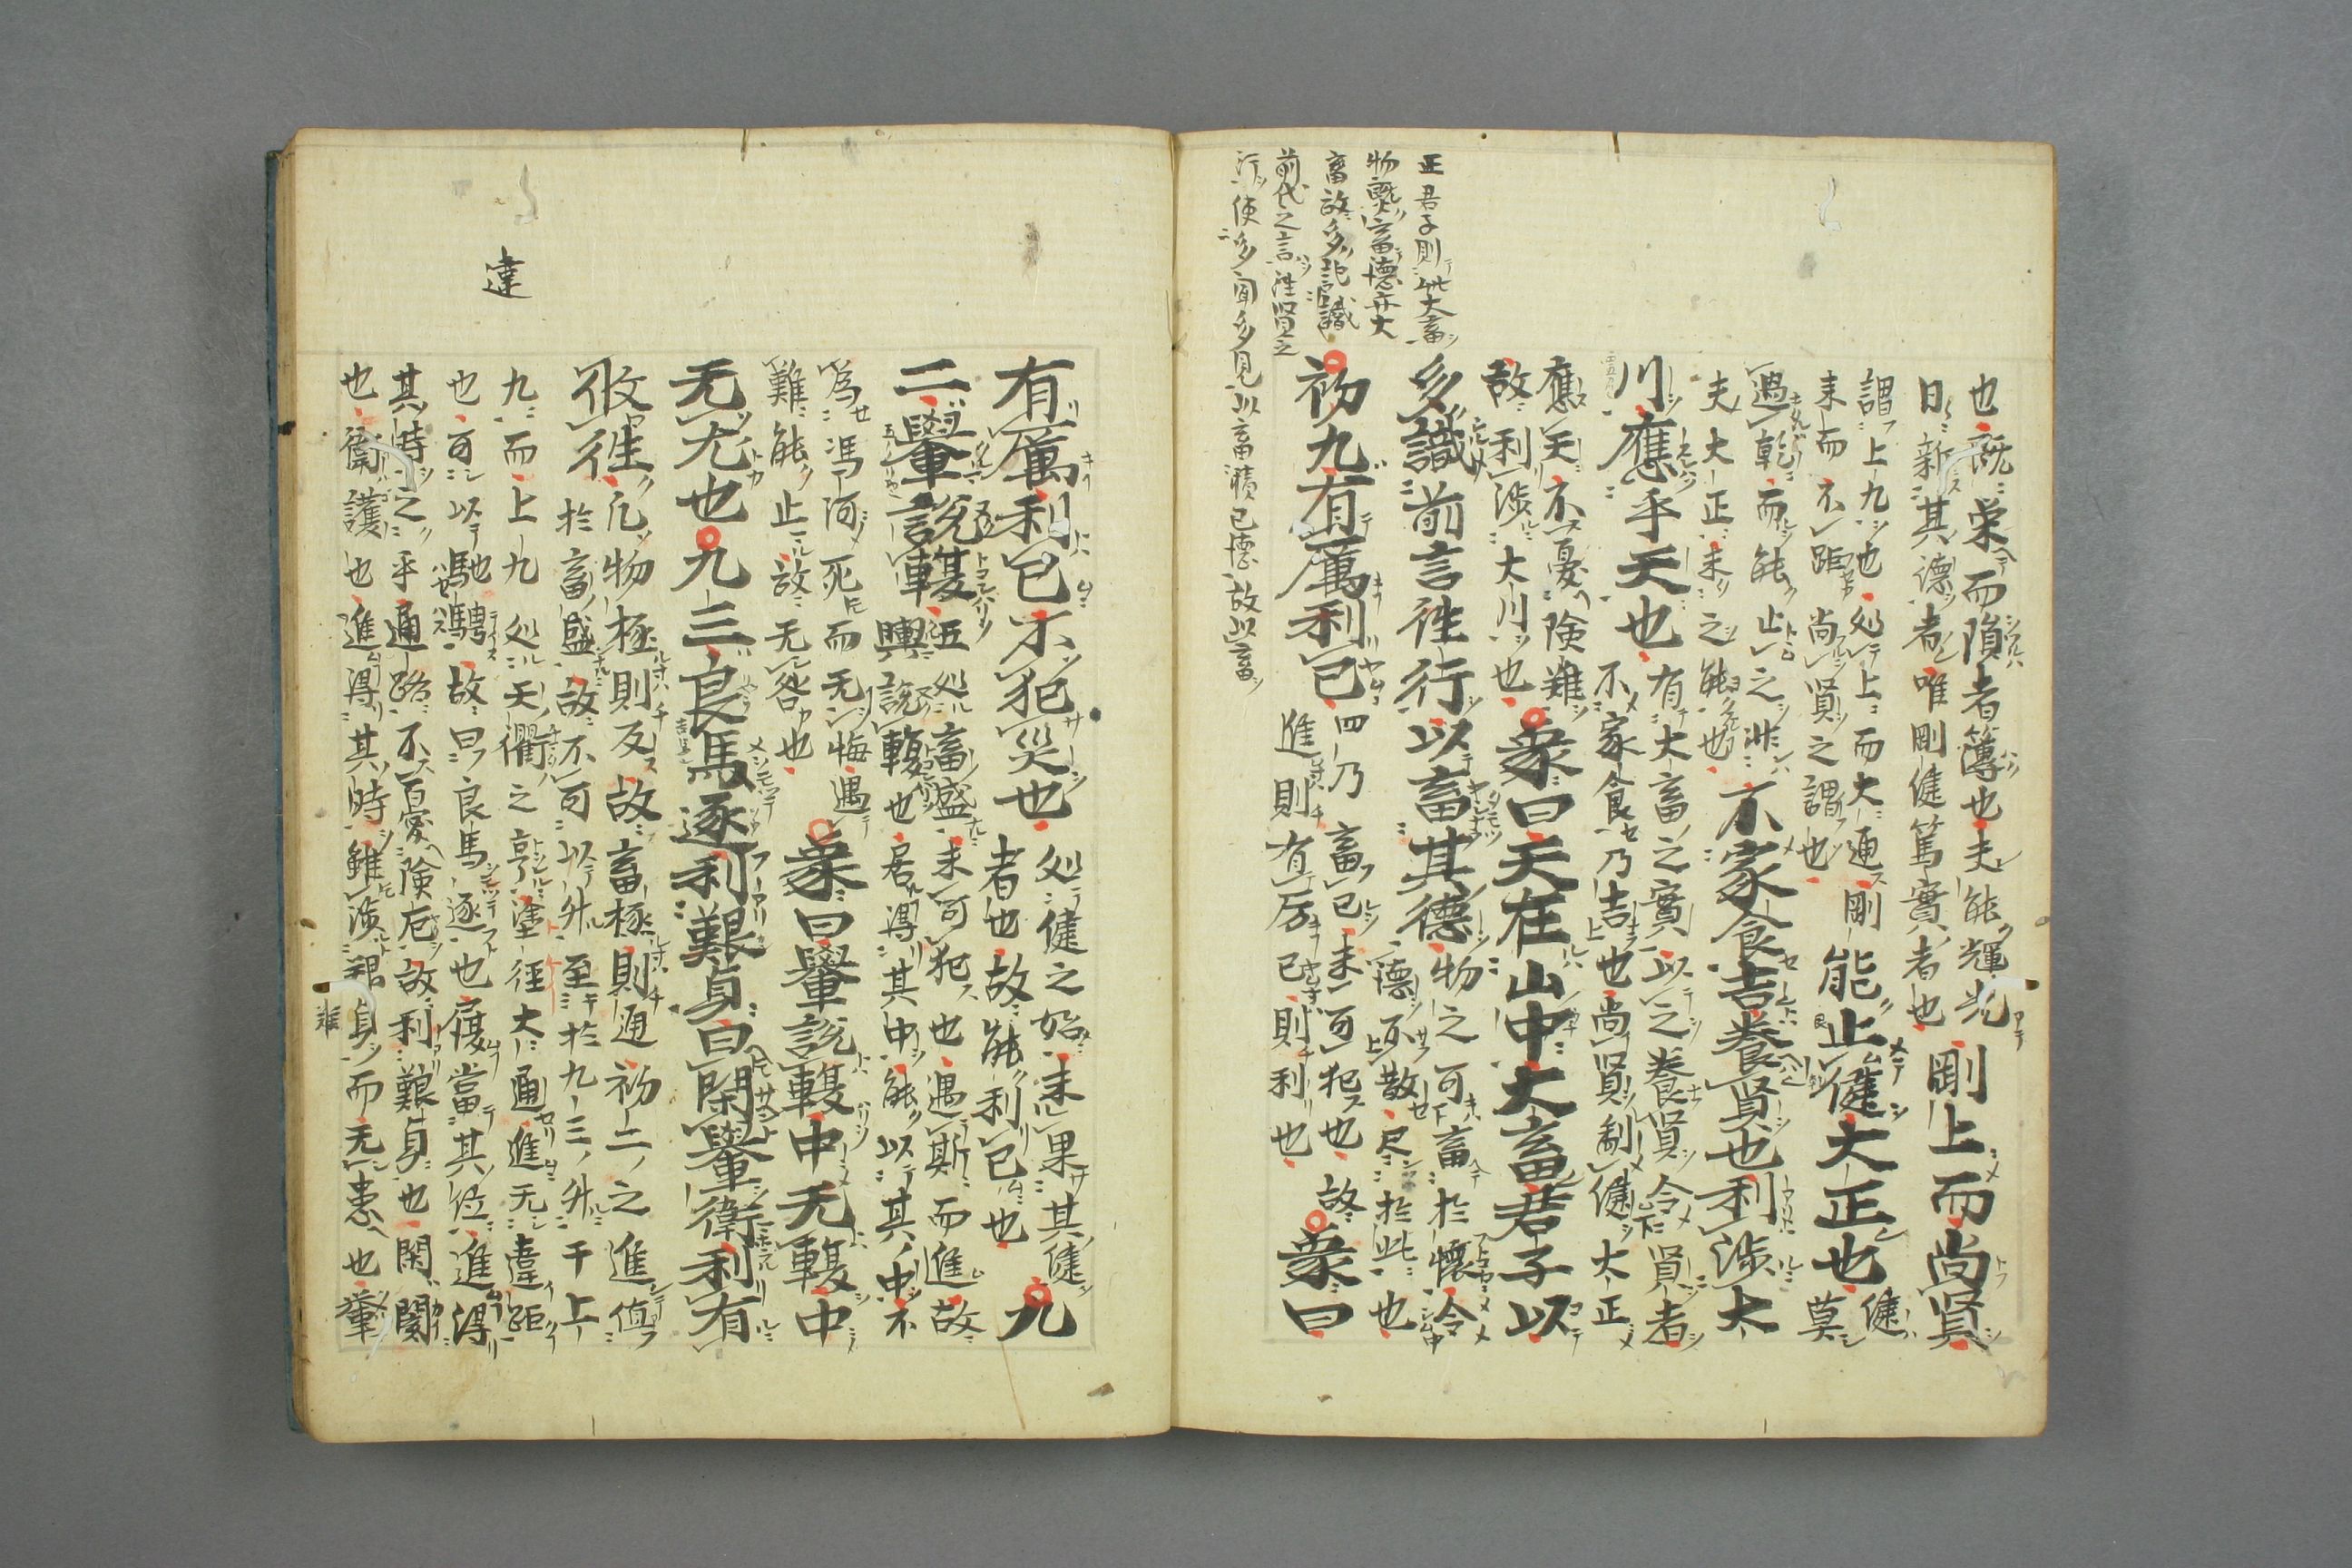 正君子則此大畜
畜故多記識
前代之言往賢之
行使多聞多見以畜積已德故以畜
也既栄而隕者薄也夫能輝光
日新其德者唯剛健篤實者也
剛上而尚賢
謂上九也処上而大通剛
来而不距尚賢之謂也
能止健大正也
健
莫
過乾而能止之非
夫大正未之能也
不家食吉養賢也利渉大
川應乎天也
有大畜之實以之養賢令賢者
不家食乃吉也尚賢制健大正
應天不憂険難
故利渉大川也
象曰天在山中大畜君子以
多識前言往行以畜其德
物之可畜於懐令
德不散尽於此也
初九有厲利已
四乃畜已未可犯也故
進則有厉已則利也
象曰
有厲利已不犯災也
処健之始未果其健
者也故能利已也
九
二轝說輹
五処畜盛未可犯也遇斯而進故
輿說輹也居得其中能以其中不
為馮河死而无悔遇
難能止故无咎也
象曰轝說輹中无輹中
无尤也九三良馬逐利艱貞曰閑轝衛利有
攸往
凡物極則反故畜極則通初二之進値
於畜盛故不可以升至於九三升于上
九而上九処天衢之亨塗徑大通進无違距
也可以馳騁故曰良馬逐也履當其位進得
其時之乎通路不憂険厄故利艱貞也閑閡
也衛護也進得其時雖渉艱貞而无患也轝
違
難